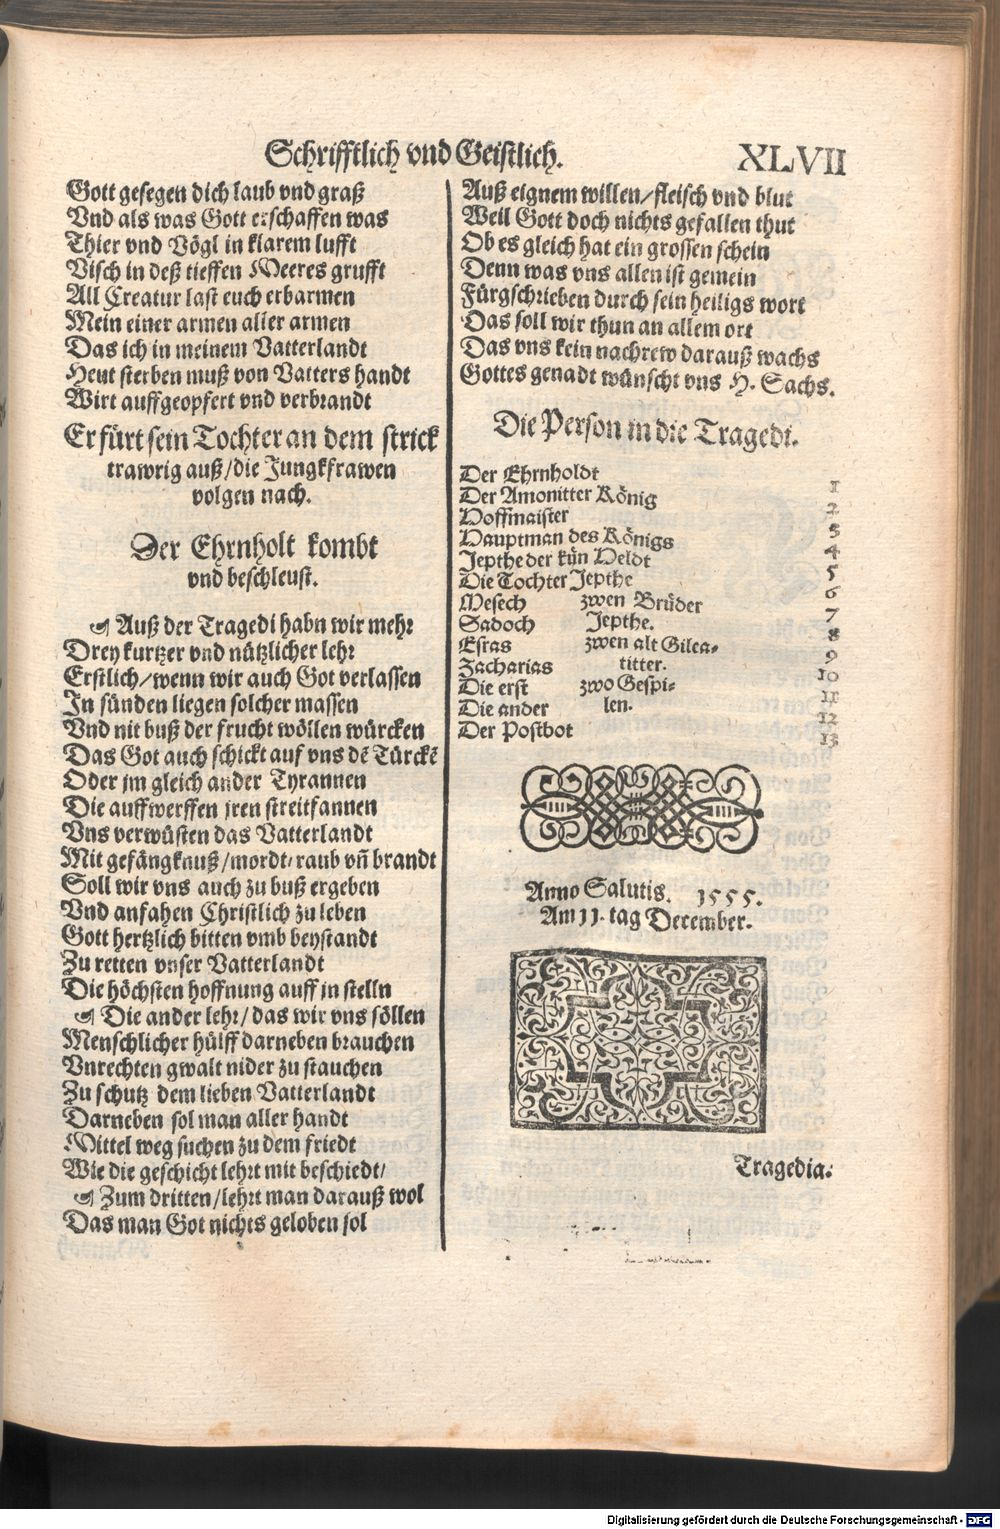 Schrifftlich vnd Geistlich.
XLVII
Gott gesegen dich laub vnd graß
Vnd als was Gott erschaffen was
Thier vnd Vögl in klarem lufft
Visch in deß tieffen Meeres grufft
All Creatur last euch erbarmen
Mein einer armen aller armen
Das ich in meinem Vatterlandt
Heut sterben muß von Vatters handt
Wirt auffgeopfert vnd verbrandt
Er fürt sein Tochter an dem strick
trawrig auß/die Jungkfrawen
volgen nach.
Der Ehrnholt kombt
vnd beschleust.
Auß der Tragedi habn wir mehr
Drey kurtzer vnd nützlicher lehr
Erstlich/wenn wir auch Got verlassen
In sünden liegen solcher massen
Vnd nit buß der frucht wöllen würcken
Das Got auch schickt auf vns dē Türckē
Oder jm gleich ander Tyrannen
Die auffwerffen jren streitfannen
Vns verwüsten das Vatterlandt
Mit gefängknuß/mordt/raub vñ brandt
Soll wir vns auch zu buß ergeben
Vnd anfahen Christlich zu leben
Gott hertzlich bitten vmb beystandt
Zu retten vnser Vatterlandt
Die höchsten hoffnung auff jn stelln
Die ander lehr/das wir vns söllen
Menschlicher hülff darneben brauchen
Vnrechten gwalt nider zu stauchen
Zu schutz dem lieben Vatterlandt
Darneben sol man aller handt
Mittel weg suchen zu dem friedt
Wie die geschicht lehrt mit beschiedt/
Zum dritten/lehrt man darauß wol
Das man Got nichts geloben sol
Auß eignem willen/fleisch vnd blut
Weil Gott doch nichts gefallen thut
Ob es gleich hat ein grossen schein
Denn was vns allen ist gemein
Fürgschrieben durch sein heiligs wort
Das soll wir thun an allem ort
Das vns kein nachrew darauß wachs
Gottes genadt wünscht vns H. Sachs.
Die Person in die Tragedi.
Der Ehrnholdt 1
Der Amonitter König 2
Hoffmaister 3
Hauptman des Königs 4
Jepthe der kün Heldt 5
Die Tochter Jepthe 6
Mesech zwen Brüder 7
Sadoch Jepthe. 8
Esras zwen alt Gilea- 9
Zacharias titter. 10
Die erst zwo Gespi- 11
Die ander len. 12
Der Postbot 13
Anno Salutis. 1555.
Am 11. tag December.
Tragedia.
Digitalisierung gefördert durch die Deutsche Forschungsgemeinschaft - DFG